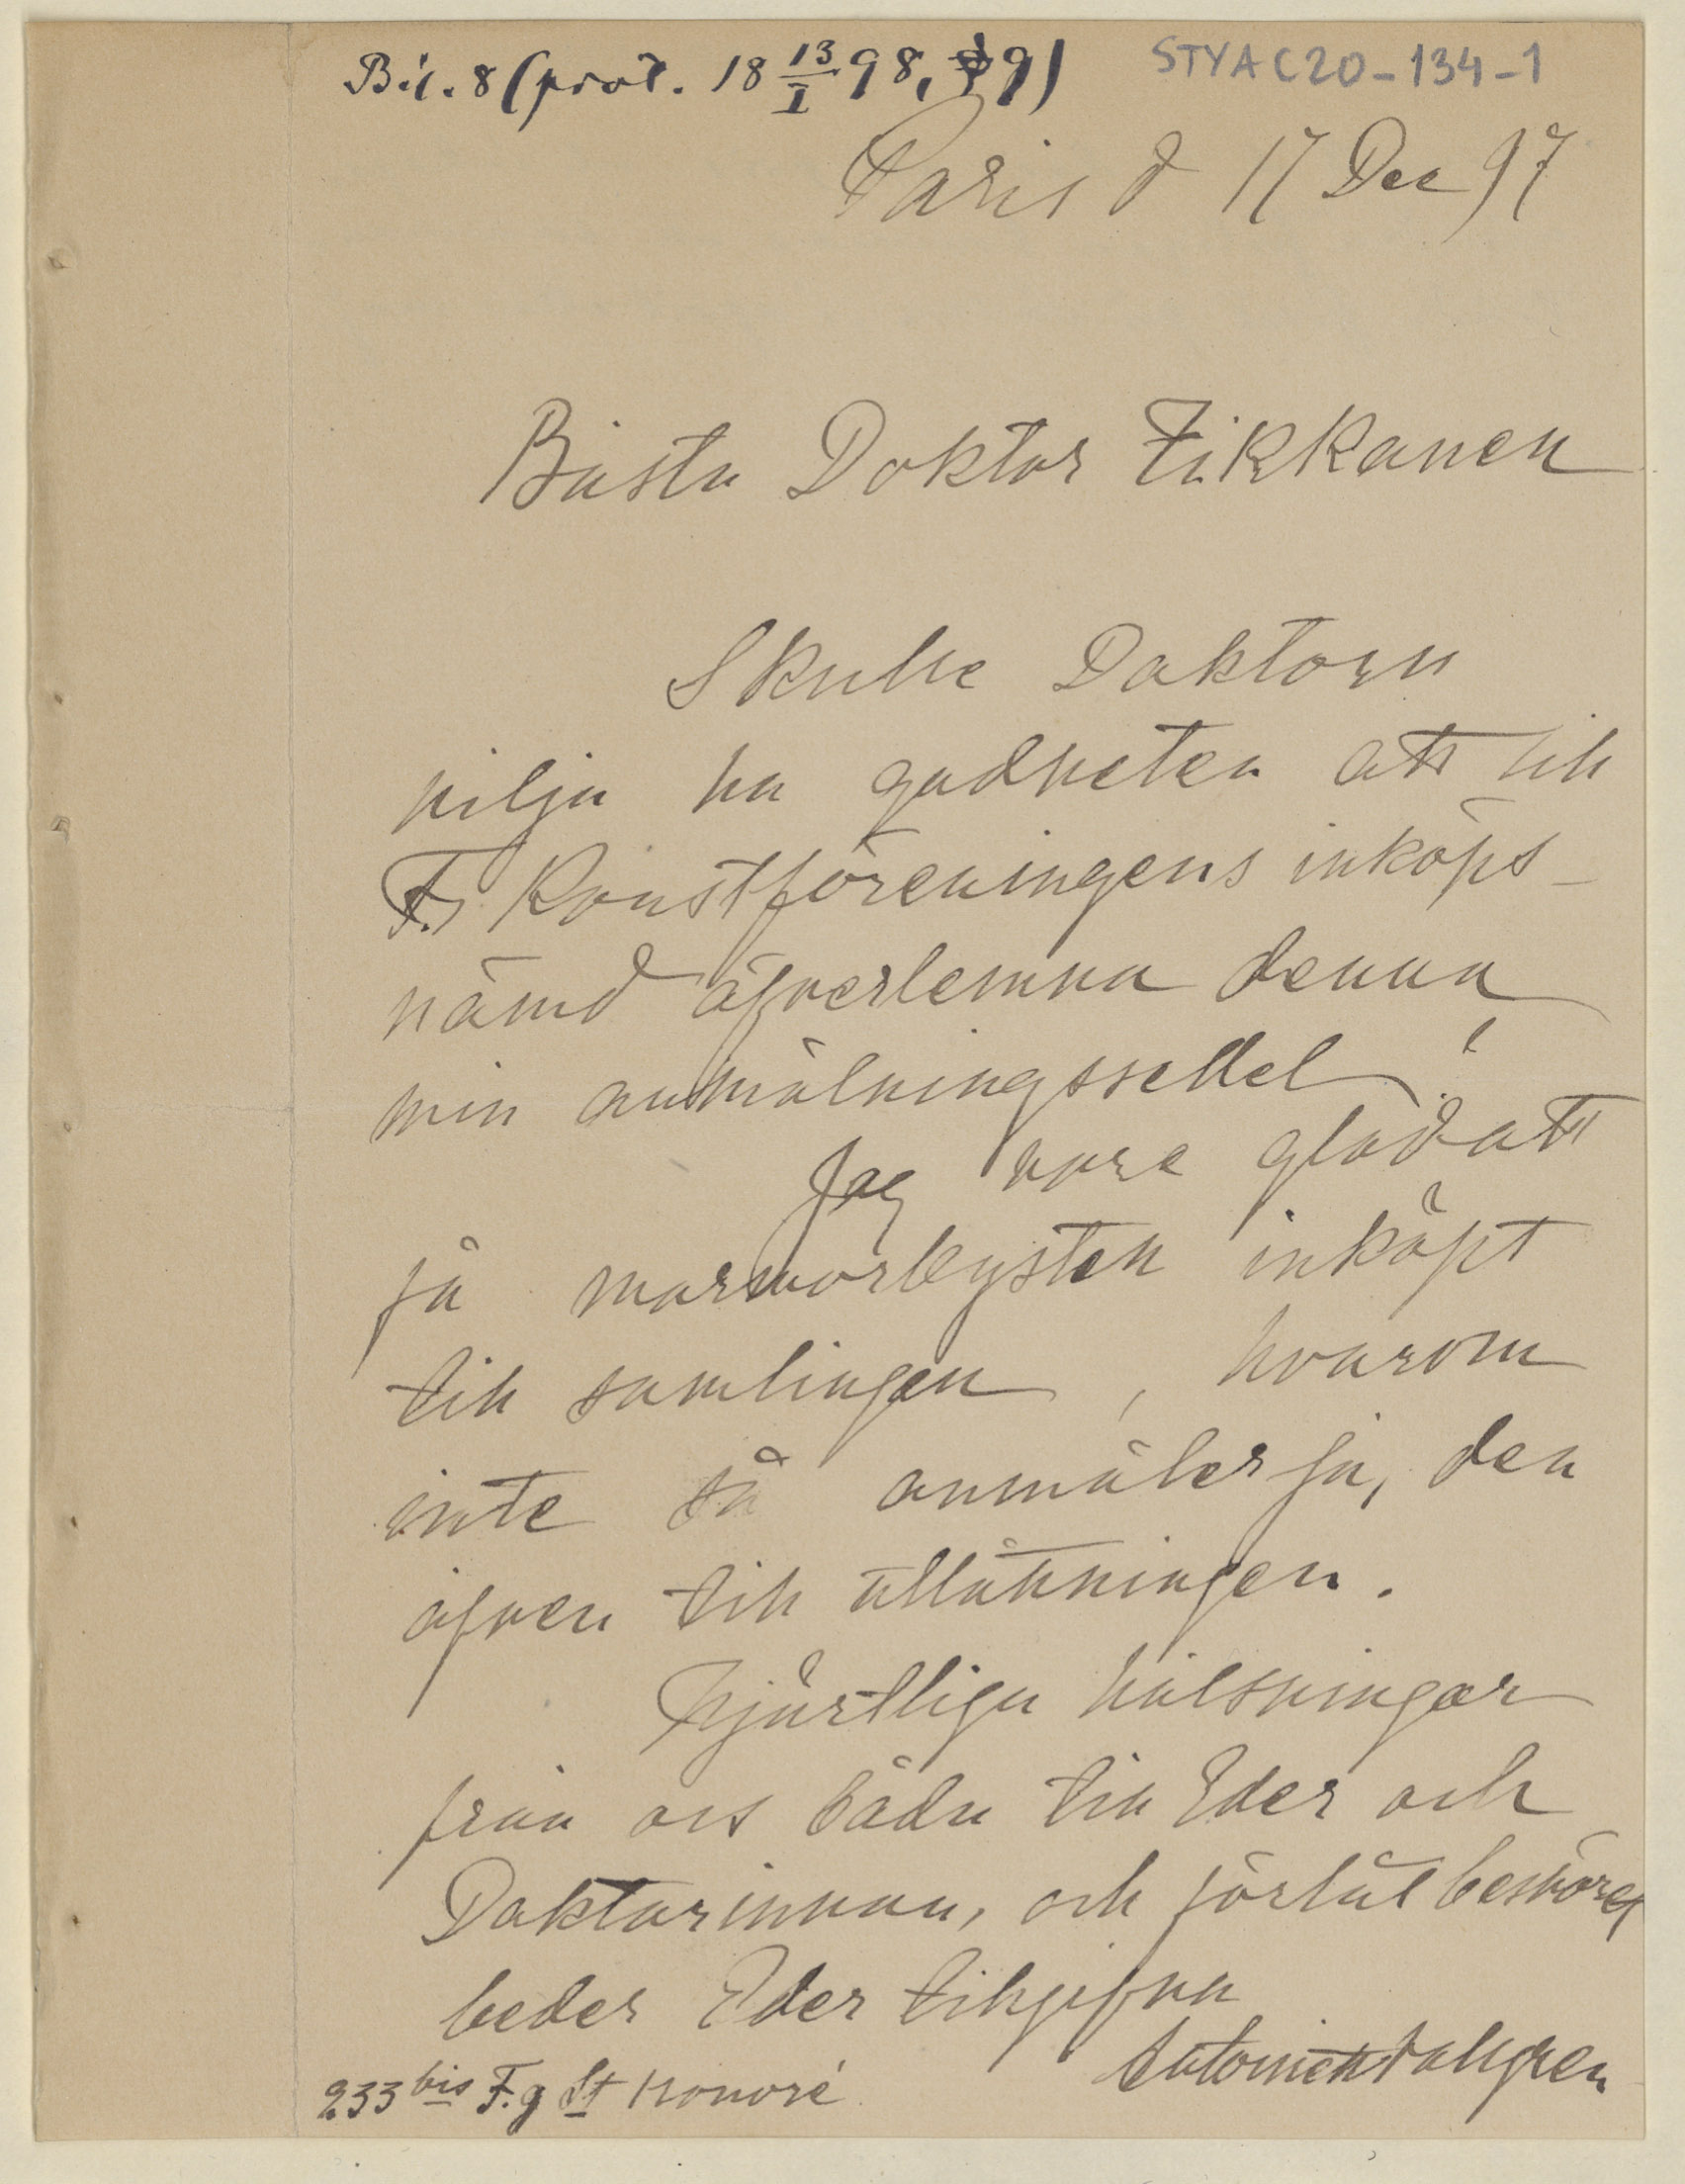 Bil. 8 (prot. 18 13/I 98, § 9)
STYA C20-134-1
Paris d 17 Dec 97
Bästa Doktor Tikkanen
Skulle Doktorn
vilja ha godheten att till
F. Konstföreningens inköps-
nämd öfverlemna denna
min anmälningssedel!
Jag vore glad att
få marmorbysten inköpt
till samlingen, hvarom
inte så anmäler ja, den
äfven till utlottningen.
Hjärtliga hälsningar
från oss båda till Eder och
Doktorinnan, och förlåt besväret
beder Eder tillgifna
233 bis F.g St Honoré